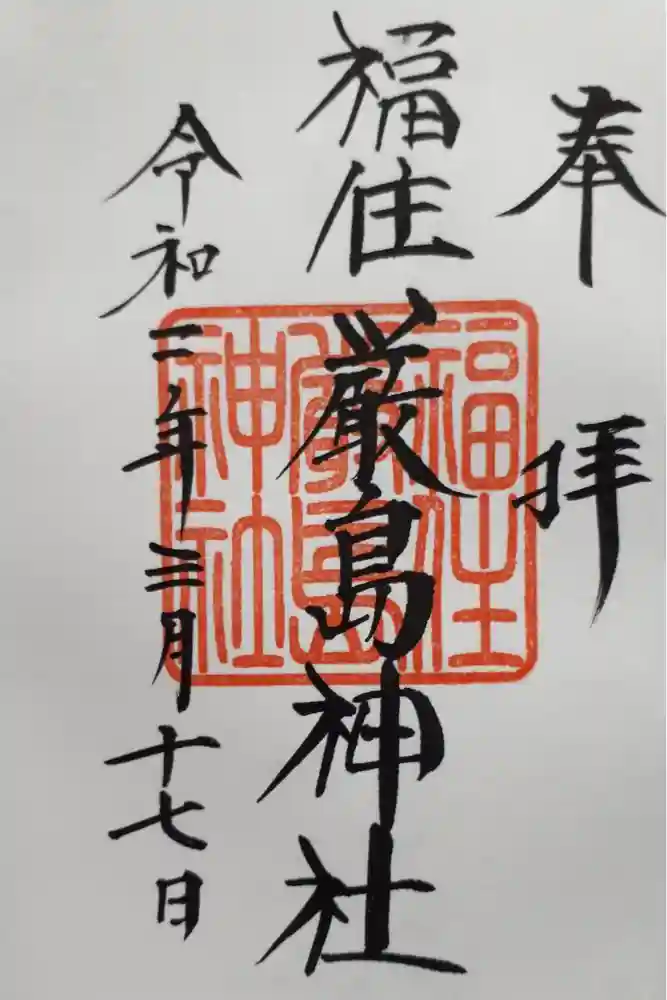 奉拝
福住厳島神社
令和二年三月十七日
福住
厳島
神社